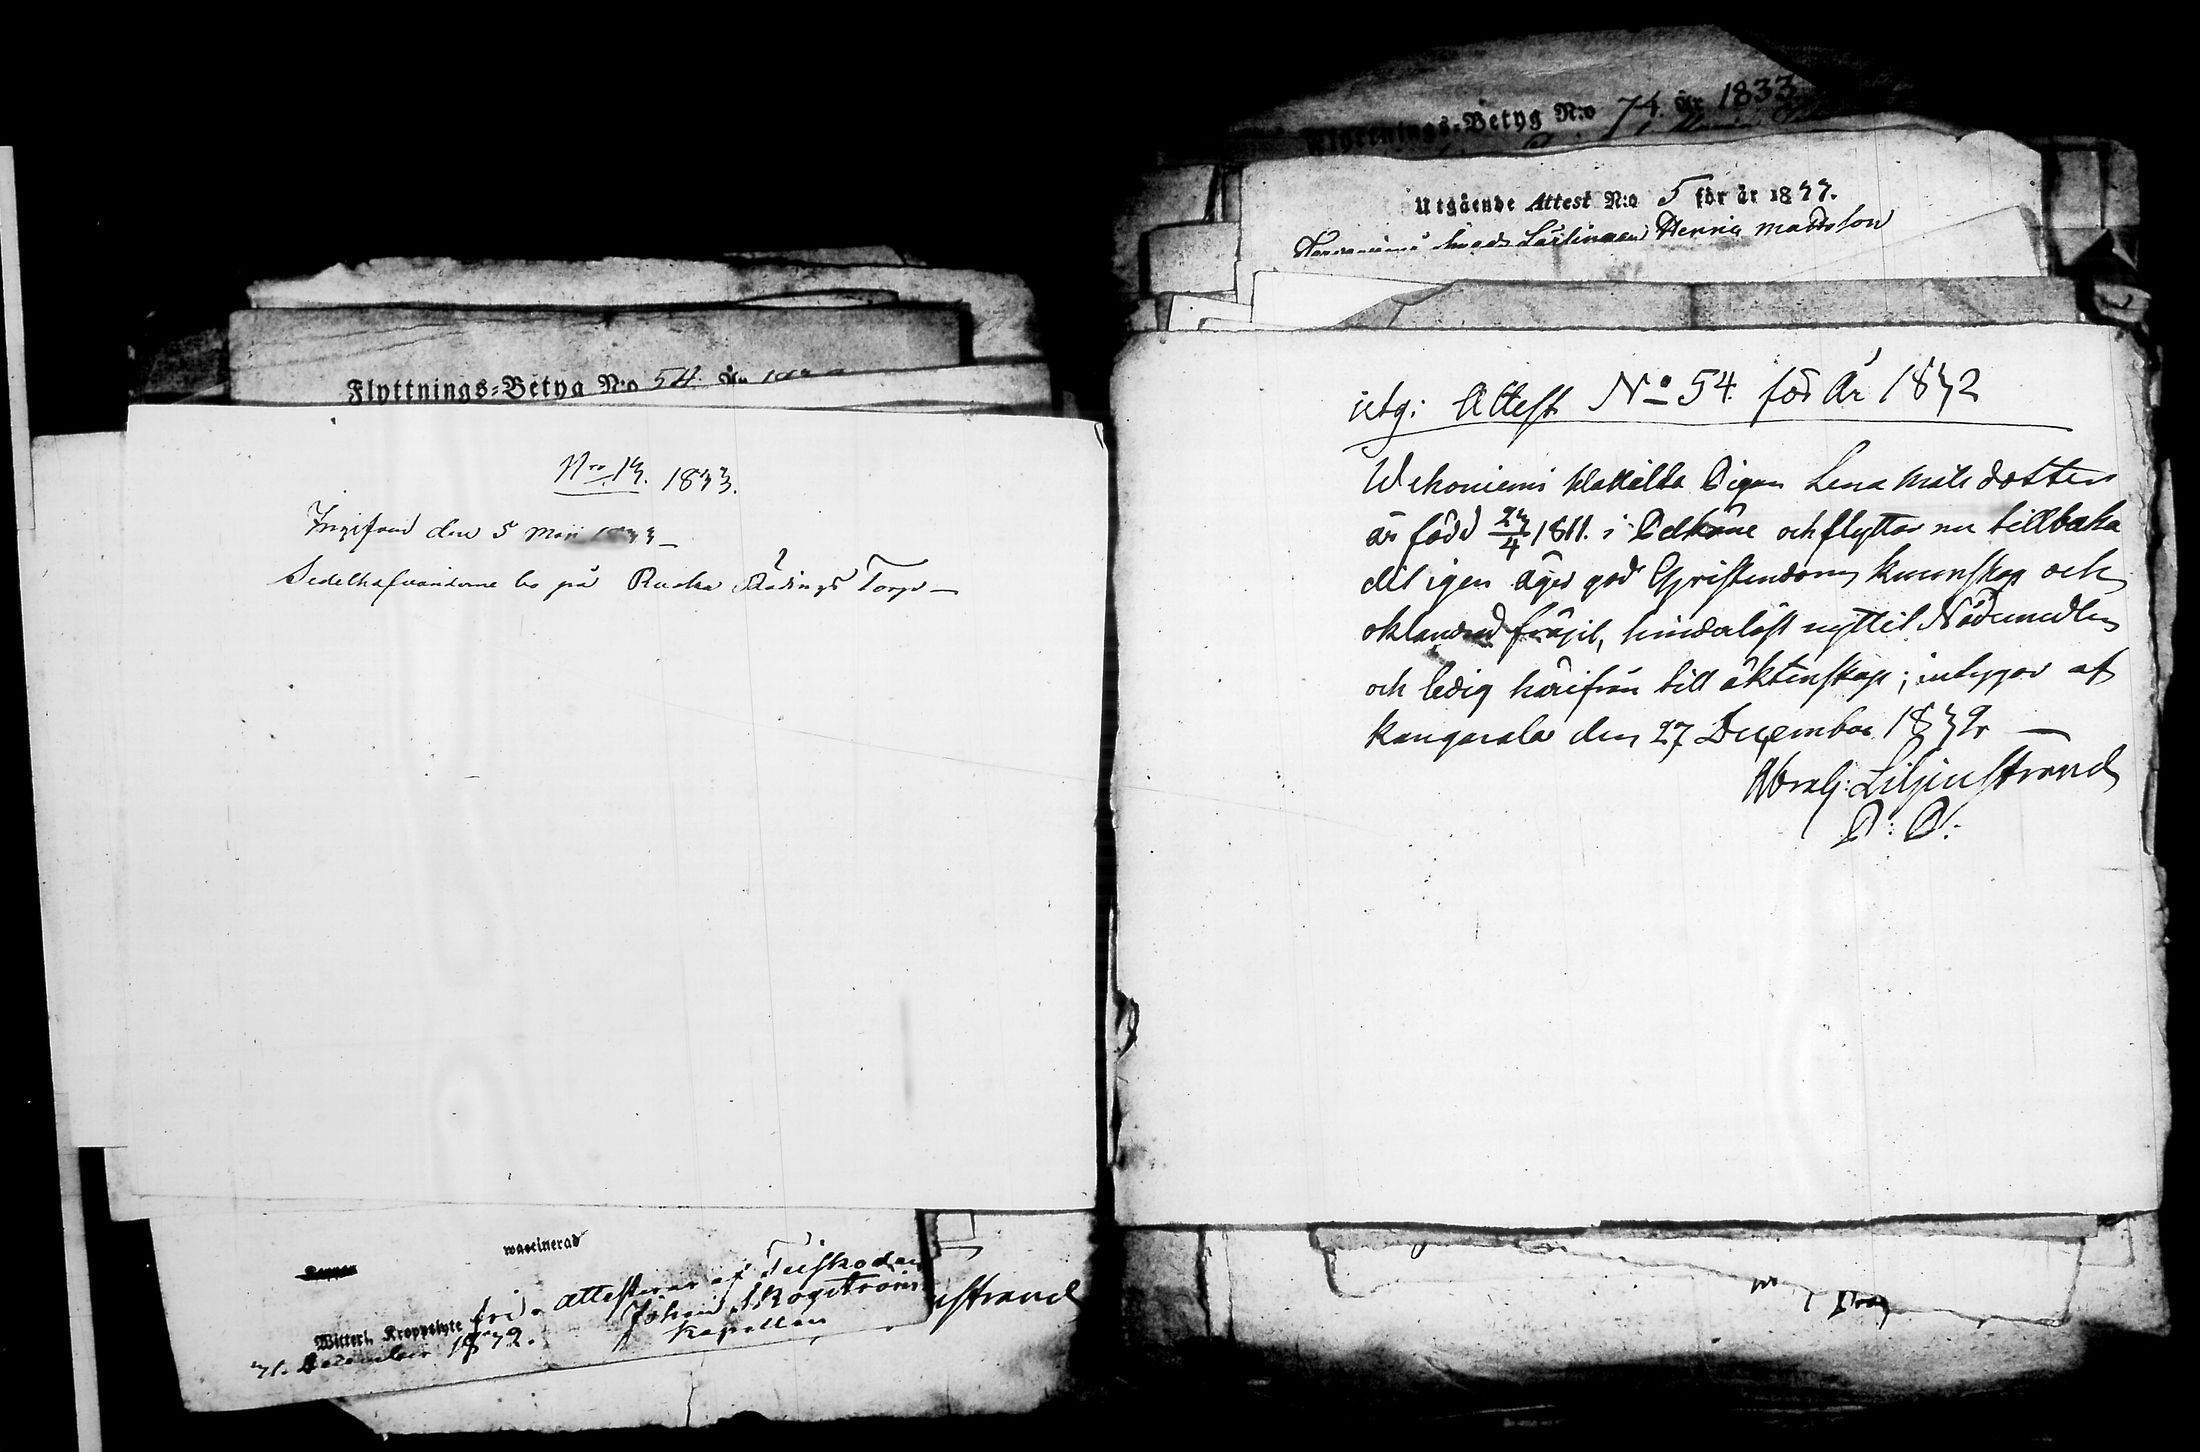 Flyttnings-Betyg N:o 54. År
N:ro 13. 1833.
Ingifven den 5 Maii 1833 —
Sedelhafvanderne bo på Ruska Rådings Torp —
waccinerad
Witterl. Kroppslyte fri. attesterar af Tuiskodan
Johan Skogström
31. December 1832. Kapellan
strand
Flyttnings-Betyg N:o 74. År 1833
Utgående Attest N:o 5 för år 1833.
Lärlingen Henric Mattsson
utg: Attest No 54. för År 1832
Wehoniemi Pigan Lena Matsdotter
är född 23/4 1811. i Pelkäne och flyttar nu tillbaka
dit igen äger god Christendoms kunnskap och
oklandrad fräjd, hinderlöst nyttjt Nådemedlen
och ledig härifrån till äktenskap; intygar af
Kangasala den 27 December 1832 —
Abrah: Liljenstrand
P: P: